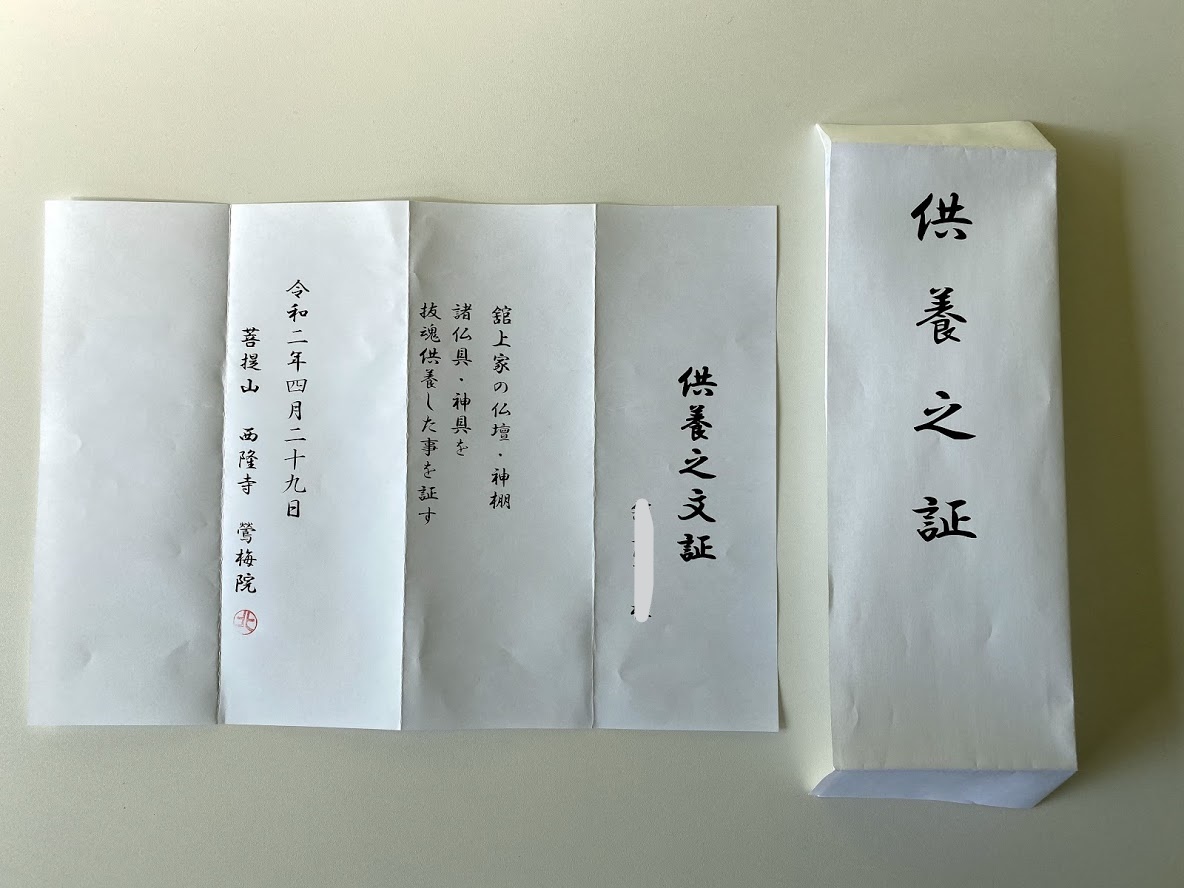 供養之証
供養之文証
舘上家の仏壇・神棚
諸仏具・神具を
抜魂供養した事を証す
令和二年四月二十九日
菩提山 西隆寺 鶯梅院
北